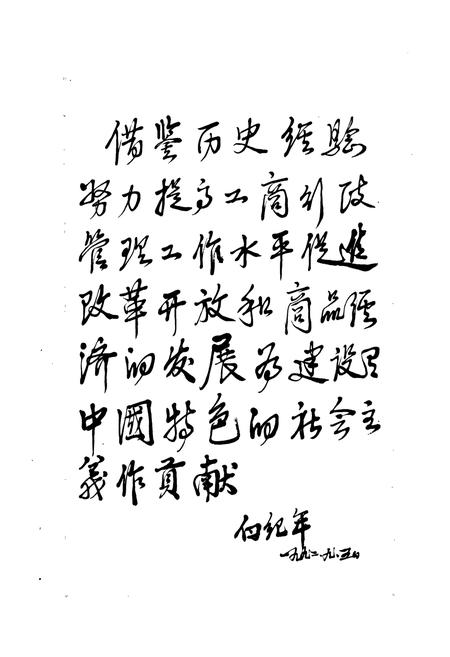 借鉴历史经验
努力提高工商行政
管理工作水平促进
改革开放和商品经
济的发展为建设具
中國特色的社会主
義作貢献
何纪年
一九九二.九.五日